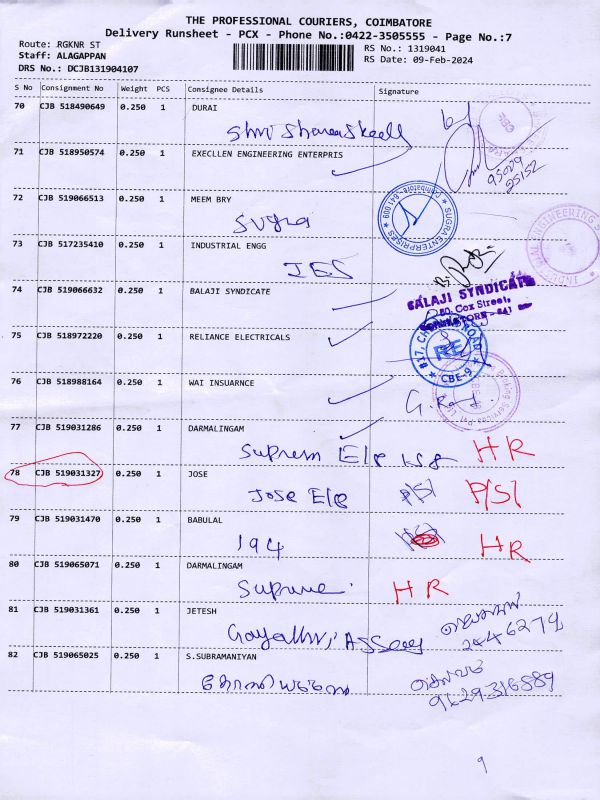 THE PROFESSIONAL COURIERS, COIMBATORE
Delivery Runsheet - PCX - Phone No.:0422-3505555 - Page No.:7
Route: RGKNR ST RS No.: 1319041
Staff: ALAGAPPAN RS Date: 09-Feb-2024
DRS No.: DCJB131904107
S No Consignment No Weight PCS Consignee Details Signature
70 CJB 518490649 0.250 1 DURAI
71 CJB 518950574 0.250 1 EXECLLEN ENGINEERING ENTERPRIS
95029
25152
72 CJB 519066513 0.250 1 MEEM BRY
Sugra
SUGRA ENTERPRISES Coimbatore-641 009
73 CJB 517235410 0.250 1 INDUSTRIAL ENGG
IES
74 CJB 519066632 0.250 1 BALAJI SYNDICATE
BALAJI SYNDICATE
Cox Street,
75 CJB 518972220 0.250 1 RELIANCE ELECTRICALS
RE
CBE-9
76 CJB 518988164 0.250 1 WAI INSUARNCE
77 CJB 519031286 0.250 1 DARMALINGAM
Suprem Ele HR
78 CJB 519031327 0.250 1 JOSE
Jose Ele P/S/ P/S/
79 CJB 519031470 0.250 1 BABULAL
194 HR
80 CJB 519065071 0.250 1 DARMALINGAM
HR
81 CJB 519031361 0.250 1 JETESH
2446274
82 CJB 519065025 0.250 1 S.SUBRAMANIYAN
9629316889
9